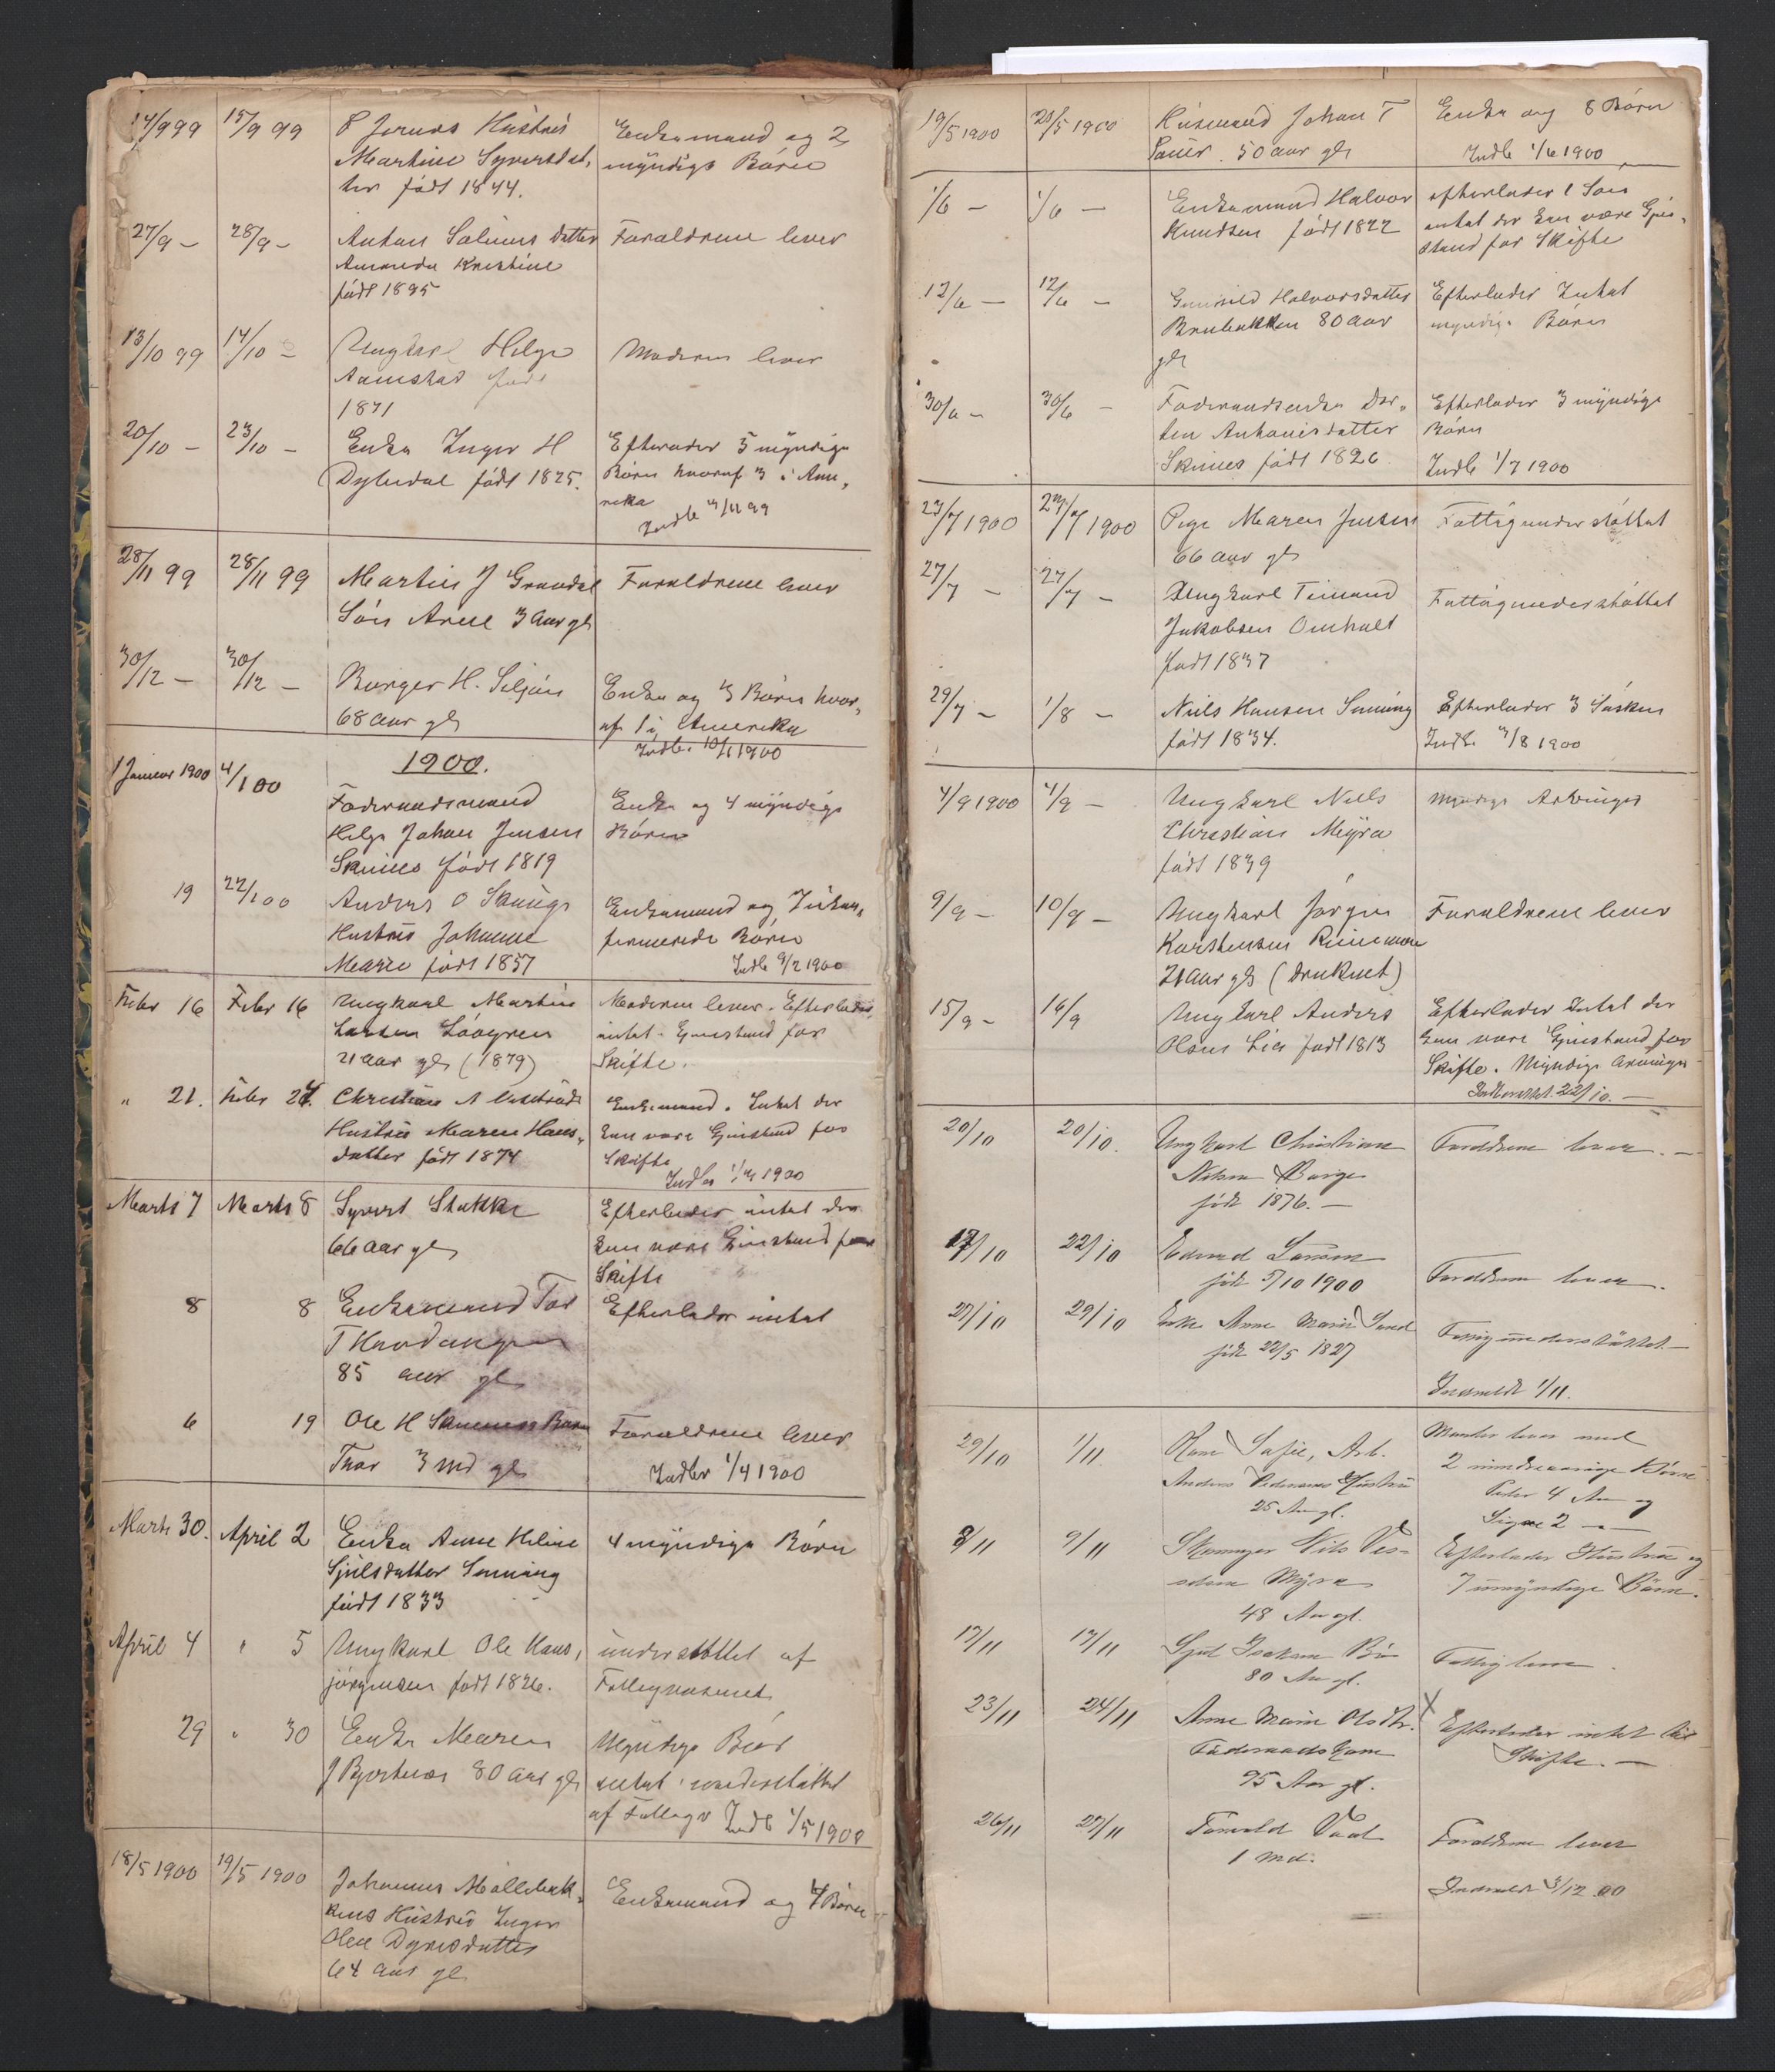 14/9 99 15/9 99 P Jorunds Hustru Enkemand og 2
Martine Syversdat, myndige Børn
ter født 1844.
27/9 – 28/9 – Anton Salinius datter Forældrene lever
Amanda Kristine
født 1895
13/10 99 14/10 – Ungkarl Helge Moderen lever
Aamstad født
1871
20/10 – 23/10 – Enke Inger H Efterlader 5 myndige
født 1825. Børn hvoraf 3 i Ame,
rika
Indb 4/11 99
28/11 99 28/11 99 Martin J Grandal Forældrene lever
Søn Arne 3 Aar gl
30/12 – 30/12 – Borger H. Siljan Enke og 3 Børn hvor,
68 aar gl af 1 i Amerika
Indb. 10/1 1900
1900.
1 Januar 1900 4/1 00
Føderaadsmand Enke og 4 myndige
Helge Johan Jensen Børn
Skimes født 1819
19 22/1 00 Anders O Enkemand og
Hustru Johanne Børn
Marie født 1857 Indb 9/2 1900
Febr 16 Febr 16 Ungkarl Martin Moderen lever. Efterlader
Larsen Løvgren intet Gjenstand for
21 aar gl (1879) Skifte.
" 21. Febr 24. Christian A Enkemand. Intet der
Hustru Maren Hans, kan være Gjenstand for
datter født 1874 Skifte
Indb 1/3 1900
Marts 7 Marts 8 Syvert Stakke Efterlader intet der
66 aar gl kan være Gjenstand for
Skifte
8 8 Enkemand Tor Efterlader intet
T Hardanger
85 aar gl
6 19 Ole H Skimes Barn Forældrene lever
Thor 3 md gl Indb 1/4 1900
Marts 30. April 2 Enke Anne Heline 4 myndige Børn
Gjulsdatter Senning
født 1833
April 4 " 5 Ungkarl Ole Hans, understøttet af
jørgensen født 1826. Fattigvæsenet
29 " 30 Enke Maren Myndige Børn
J Bjortnes 80 aar gl intet understøttet
af Fattigv Indb 1/5 1900
18/5 1900 19/5 1900 Johannes Møllebak, Enkemand og 4 Børn
kens Hustru Inger
Olea Dyresdatter
64 aar gl
19/5 1900 20/5 1900 Husmand Johan T Enke og 8 Børn
50 aar gl Indb 1/6 1900
1/6 – 1/6 – Enkemand Halvor efterlader 1 Søn
Knudsen født 1822 intet der kan være Gjen,
stand for Skifte
12/6 – 12/6 – Gunild Halvorsdatter Efterlader Intet
Brubakken 80 aar myndige Børn
gl
30/6 – 30/6 – Føderaadsenke Dor, Efterlader 3 myndige
tea Anhonisdatter Børn
Skimes født 1826 Indb 1/7 1900
23/7 1900 24/7 1900 Pige Maren Jensen Fattigunderstøttet
66 aar gl
27/7 – 27/7 – Ungkarl Temand Fattigunderstøttet
Jakobsen Omholt
født 1837
29/7 – 1/8 – Niels Hansen Senning Efterlader 3 Søsken
født 1834. Indb 3/8 1900
4/9 1900 4/9 – Ungkarl Niels Myndige Arvinger
Christian Myra
født 1839
9/9 – 10/9 – Ungkarl Jørgen Forældrene lever
Karstensen
21 aar gl (Druknet)
15/9 – 16/9 Ungkarl Anders Efterlader Intet der
Olsen Lia født 1813 kan være Gjenstand for
Skifte. Myndige Arvinger
22/10. –
20/10 20/10. Ungkarl Christian Forældrene lever. –
Nilsen Borge
født 1876. –
17/10 22/10 Edvard Larsen
født 5/10 1900 Forældrene lever.
27/10 29/10 Enke Anne Marie Sand Fattigunderstøttet –
født 22/5 1827
Indmeldt 1/11.
29/10 1/11 Kone Sofie, Arb. Manden lever med
Anders Pedersens Hustru 2 mindreaarige Børn
25 Aar gl. Peder 4 Aar og
Signe 2 – –
8/11 9/11 Skomager Nils Efterlader Hustru og
Myra 7 umyndige Børn.
48 Aar gl.
17/11 17/11 Isaksen Bø Fattiglem.
80 Aar gl.
23/11 24/11 Anne Marie Olsdtr. X Efterlader intet til
Føderaadskone Skifte. –
95 Aar gl.
26/11 27/11 Torvald Vaal Forældrene lever
1 Md.
Indmeldt 3/12 00